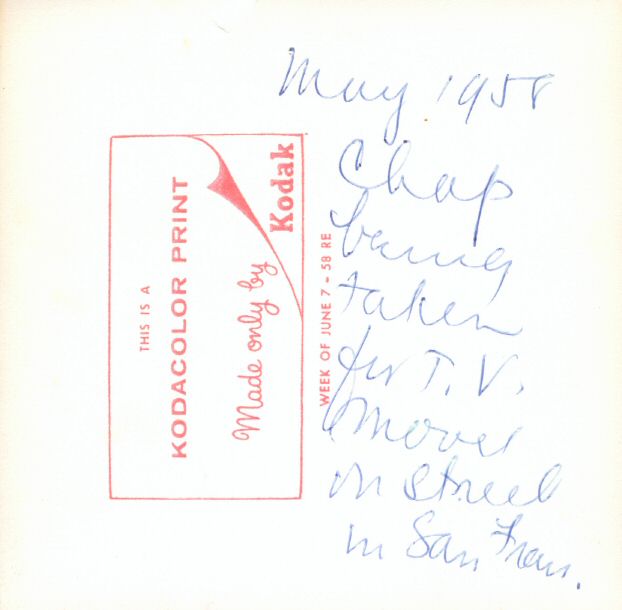 May 1958
Chap
being
taken
for T.V.
movies
on street
in San Fran.
THIS IS A
KODACOLOR PRINT
Made only by
Kodak
WEEK OF JUNE 7 - 58 RE